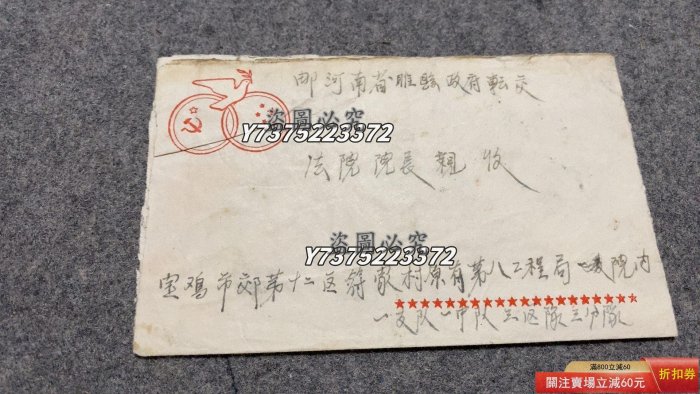 邮河南省睢縣政府転交
盗圖必究
Y7375223572
法院院長親收
盗圖必究
Y7375223572
宝鸡市郊第十二区 村原有第八工程局 院内
一支队一中队三区隊三分隊
滿800立減60
關注賣場立減60元
折扣券